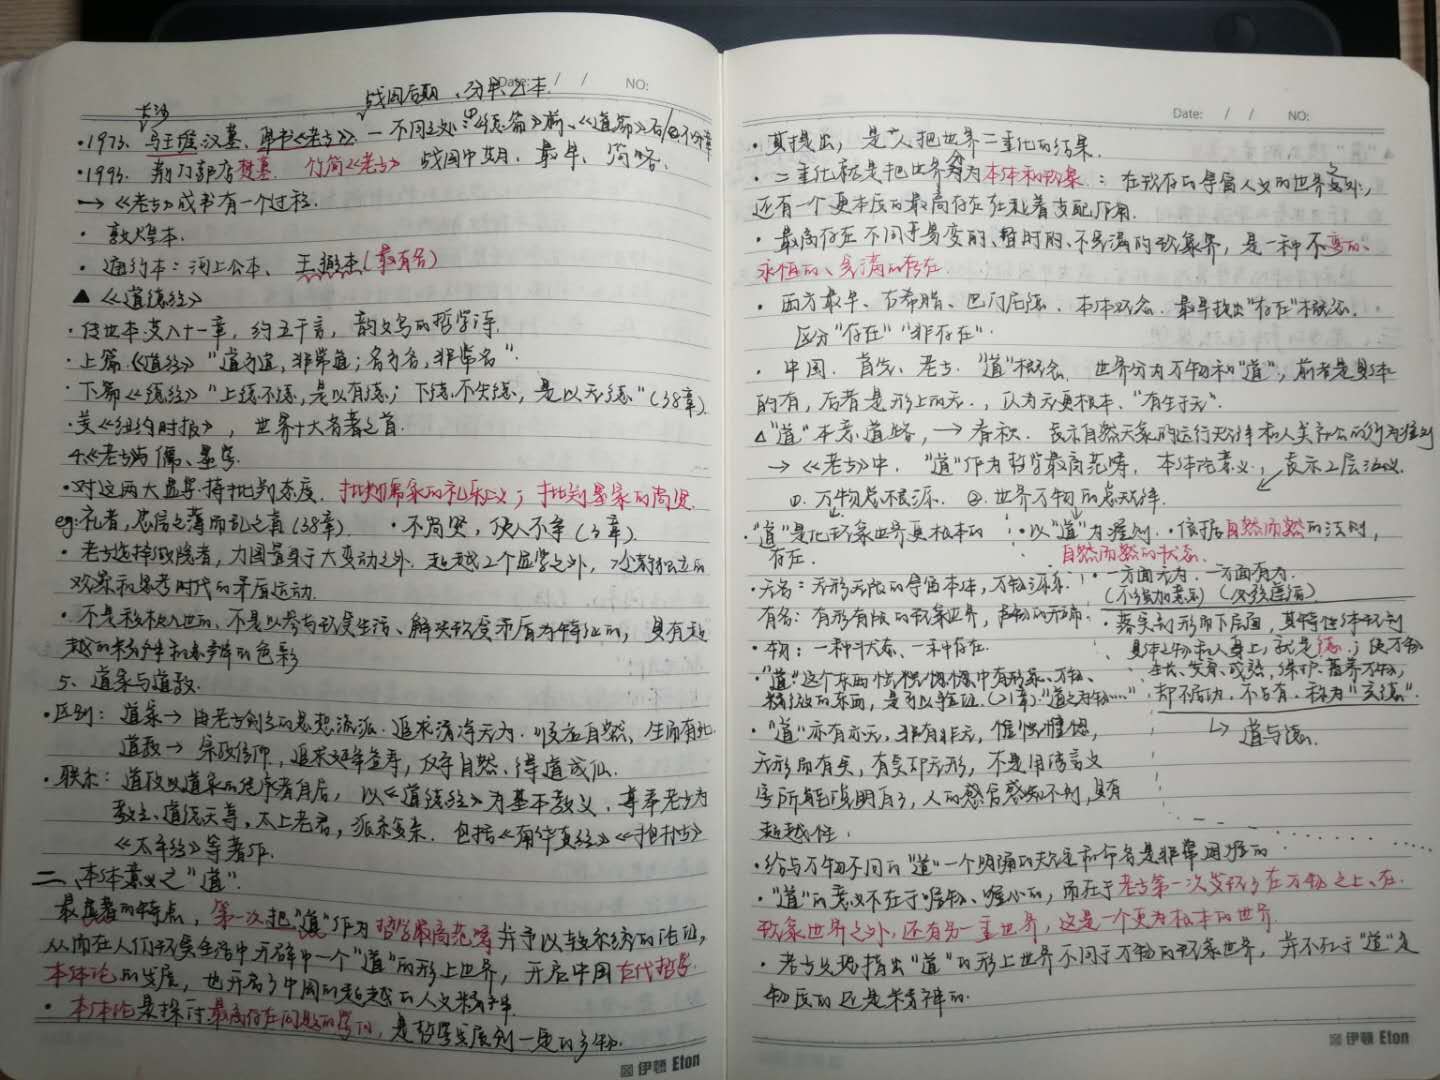 Date: / / NO:
长沙
战国后期、分甲乙本.
·1973. 马王堆汉墓. 帛书《老子》. — 不同之处:《德篇》前、《道篇》后/不分章
·1993. 荆门郭店楚墓. 竹简《老子》 战国中期. 最早, 简略.
→《老子》成书有一个过程.
· 敦煌本.
· 通行本: 河上公本、 王弼本(最有名)
▲《道德经》
·传世本共八十一章, 约五千言, 韵文写的哲学诗.
·上篇《道经》"道可道, 非常道; 名可名, 非常名".
·下篇《德经》"上德不德, 是以有德; 下德不失德, 是以无德"(38章)
·美《纽约时报》, 世界十大著者之首.
4.《老子》与儒、墨学.
·对这两大显学持批判态度. 批判儒家的礼乐仁义; 批判墨家的尚贤.
eg: 礼者, 忠信之薄而乱之首(38章). ·不尚贤, 使人不争(3章).
·老子选择做隐者, 力图置身于大变动之外. 超越2个显学之外, 冷静独立的
观察和思考时代的矛盾运动.
·不是积极入世的、不是以参与现实生活、解决现实矛盾为特征的, 具有超
越的精神和思辨的色彩
5、道家与道教.
·区别: 道家→由老子创立的思想流派. 追求清净无为. 顺应自然、生而有死.
道教→宗教信仰, 追求延年益寿, 反乎自然、得道成仙.
·联系: 道教以道家的继承者自居, 以《道德经》为基本教义, 尊奉老子为
教主、道德天尊, 太上老君, 派系复杂. 包括《南华真经》《抱朴子》
《太平经》等著作.
二、本体意义之"道".
最显著的特点, 第一次把"道"作为哲学最高范畴并予以较系统的论证,
从而在人们现实生活中开辟中一个"道"的形上世界, 开启中国古代哲学
本体论的发展, 也开启了中国的超越的人文精神.
· 本体论是探讨最高存在问题的学问, 是哲学发展到一定的多物.
伊顿 Eton
Date: / / NO:
·其提出, 是人把世界二重化的结果.
·二重化就是把世界分为本体和现象: 在现存的导富人文的世界之外,
还有一个更本质的最高存在在起着支配作用.
·最高存在不同于易变的、暂时的、不圆满的现象界, 是一种不变的、
永恒的、圆满的存在.
·西方最早、古希腊、巴门尼德. 本体概念. 最早提出"存在"概念.
区分"存在" "非存在".
· 中国. 首先、老子. "道"概念. 世界分为万物和"道", 前者是具体
的有, 后者是形上的无., 认为无更根本. "有生于无".
△"道"本意道路, →春秋. 表示自然天象的运行规律和人类社会的行为准则
→《老子》中, "道"作为哲学最高范畴, 本体论意义, 表示2层涵义.
①. 万物总根源. ②. 世界万物的总规律.
"道"是比现象世界更根本的
存在.
·以"道"为准则. ·依据自然而然的法则,
自然而然的状态.
·一方面无为. 一方面有为.
(不强加意志) (又该遵循)
·无名: 无形无限的导富本体, 万物源泉.
有名: 有形有限的现象世界,
·落实到形而下层面, 其特性体现到
具体之物和人身上, 就是德; 使万物
生长、发育、成熟, 保护、蓄养万物,
却不居功. 不占有. 称为"玄德".
↳道与德.
·有物: 一种状态、一种存在.
·"道"这个东西恍恍惚惚中有形象、万物、
精微的东西, 是可以验证. (21章)"道之为物……"
·"道"亦有亦无, 非有非无, 惟恍惟惚,
无形而有实, 有实却无形, 不是用语言文
字所能说明的, 人的感官感知不到, 具有
超越性.
·给与万物不同的"道"一个明确的规定和命名是非常困难的
·"道"的意义不在于唯物、唯心的, 而在于老子第一次发现了在万物之上、在
现象世界之外, 还有另一重世界, 这是一个更为根本的世界
·老子只想指出"道"的形上世界不同于万物的现象世界, 并不在于"道"是
物质的还是精神的.
伊顿 Eton